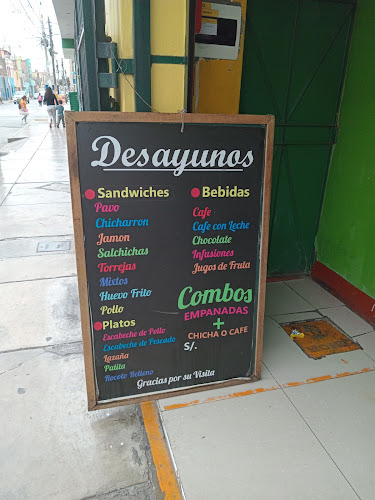 Desayunos
Sandwiches
Pavo
Chicharron
Jamon
Salchichas
Torrejas
Mixtos
Huevo Frito
Pollo
Platos
Escabeche de Pollo
Escabeche de Pescado
Lazaña
Patita
Rocoto Relleno
Bebidas
Cafe
Cafe con Leche
Chocolate
Infusiones
Jugos de Fruta
Combos
EMPANADAS
+
CHICHA O CAFE
S/.
Gracias por su Visita